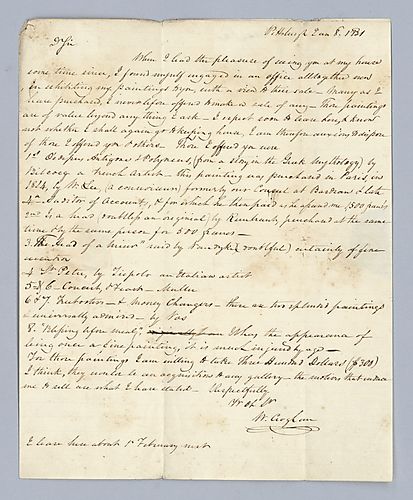 Pittsburgh Jan 8. 1831
D Sir
When I had the pleasure of seeing you at my house
some time since, I found myself engaged in an office altogether new
in exhibiting my paintings to you, with a view to their sale - Many as I
have purchased, I never before offered to make a sale of any - Those paintings
are of value beyond any thing I ask - I expect soon to leave here, & know
not whether I shall again go to keeping house, I am therefore anxious to dispose
of those I offered you & others. Those I offered you were
1st Oedipus Antigone & Polynices, (from a story in the Greek Mythology) by
a French Artist - this painting was purchased in Paris, in
1824, by Mr Lee, (a connoisseur) formerly our Consul at Bordeaux & late
4th Auditor of Accounts, & for which he then paid as he assured me, 1500 francs
2nd Is a head, doubtless an original, by Rembrandt, purchased at the same
time & by the same person for 500 francs -
3. The head of a minor said by Vandyke (doubtful) certainly of fine
execution
4 St Peter, by Tiepolo an Italian artist
5 & 6 - Comedy, & Teach - Muller
6 & 7 Extortion - & Money Changers - these are two splendid paintings
& universally admired - by Vos
8. Keeping before meat, Has the appearance of
being once a fine painting, it is much injured by age -
For these paintings I am willing to take Three Hundred Dollars ($300)
I think, they would be an acquisition to any gallery - the motives that induce
me to sell are what I have stated - Respectfully
Yr ob St
W. Croghan
I leave here about 1st February next